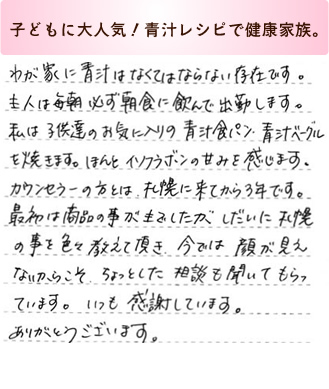 子どもに大人気！青汁レシピで健康家族。
わが家に青汁はなくてはならない存在です。
主人は毎朝必ず朝食に飲んで出勤します。
私は子供達のお気に入りの青汁食パン、青汁ベーグル
を焼きます。ほんとイソフラボンの甘みを感じます。
カウンセラーの方とは、札幌に来てから3年です。
最初は商品の事が主でしたが、しだいに札幌
の事を色々教えて頂き、今では顔が見え
ないからこそ、ちょっとした相談も聞いてもらっ
ています。いつも感謝しています。
ありがとうございます。